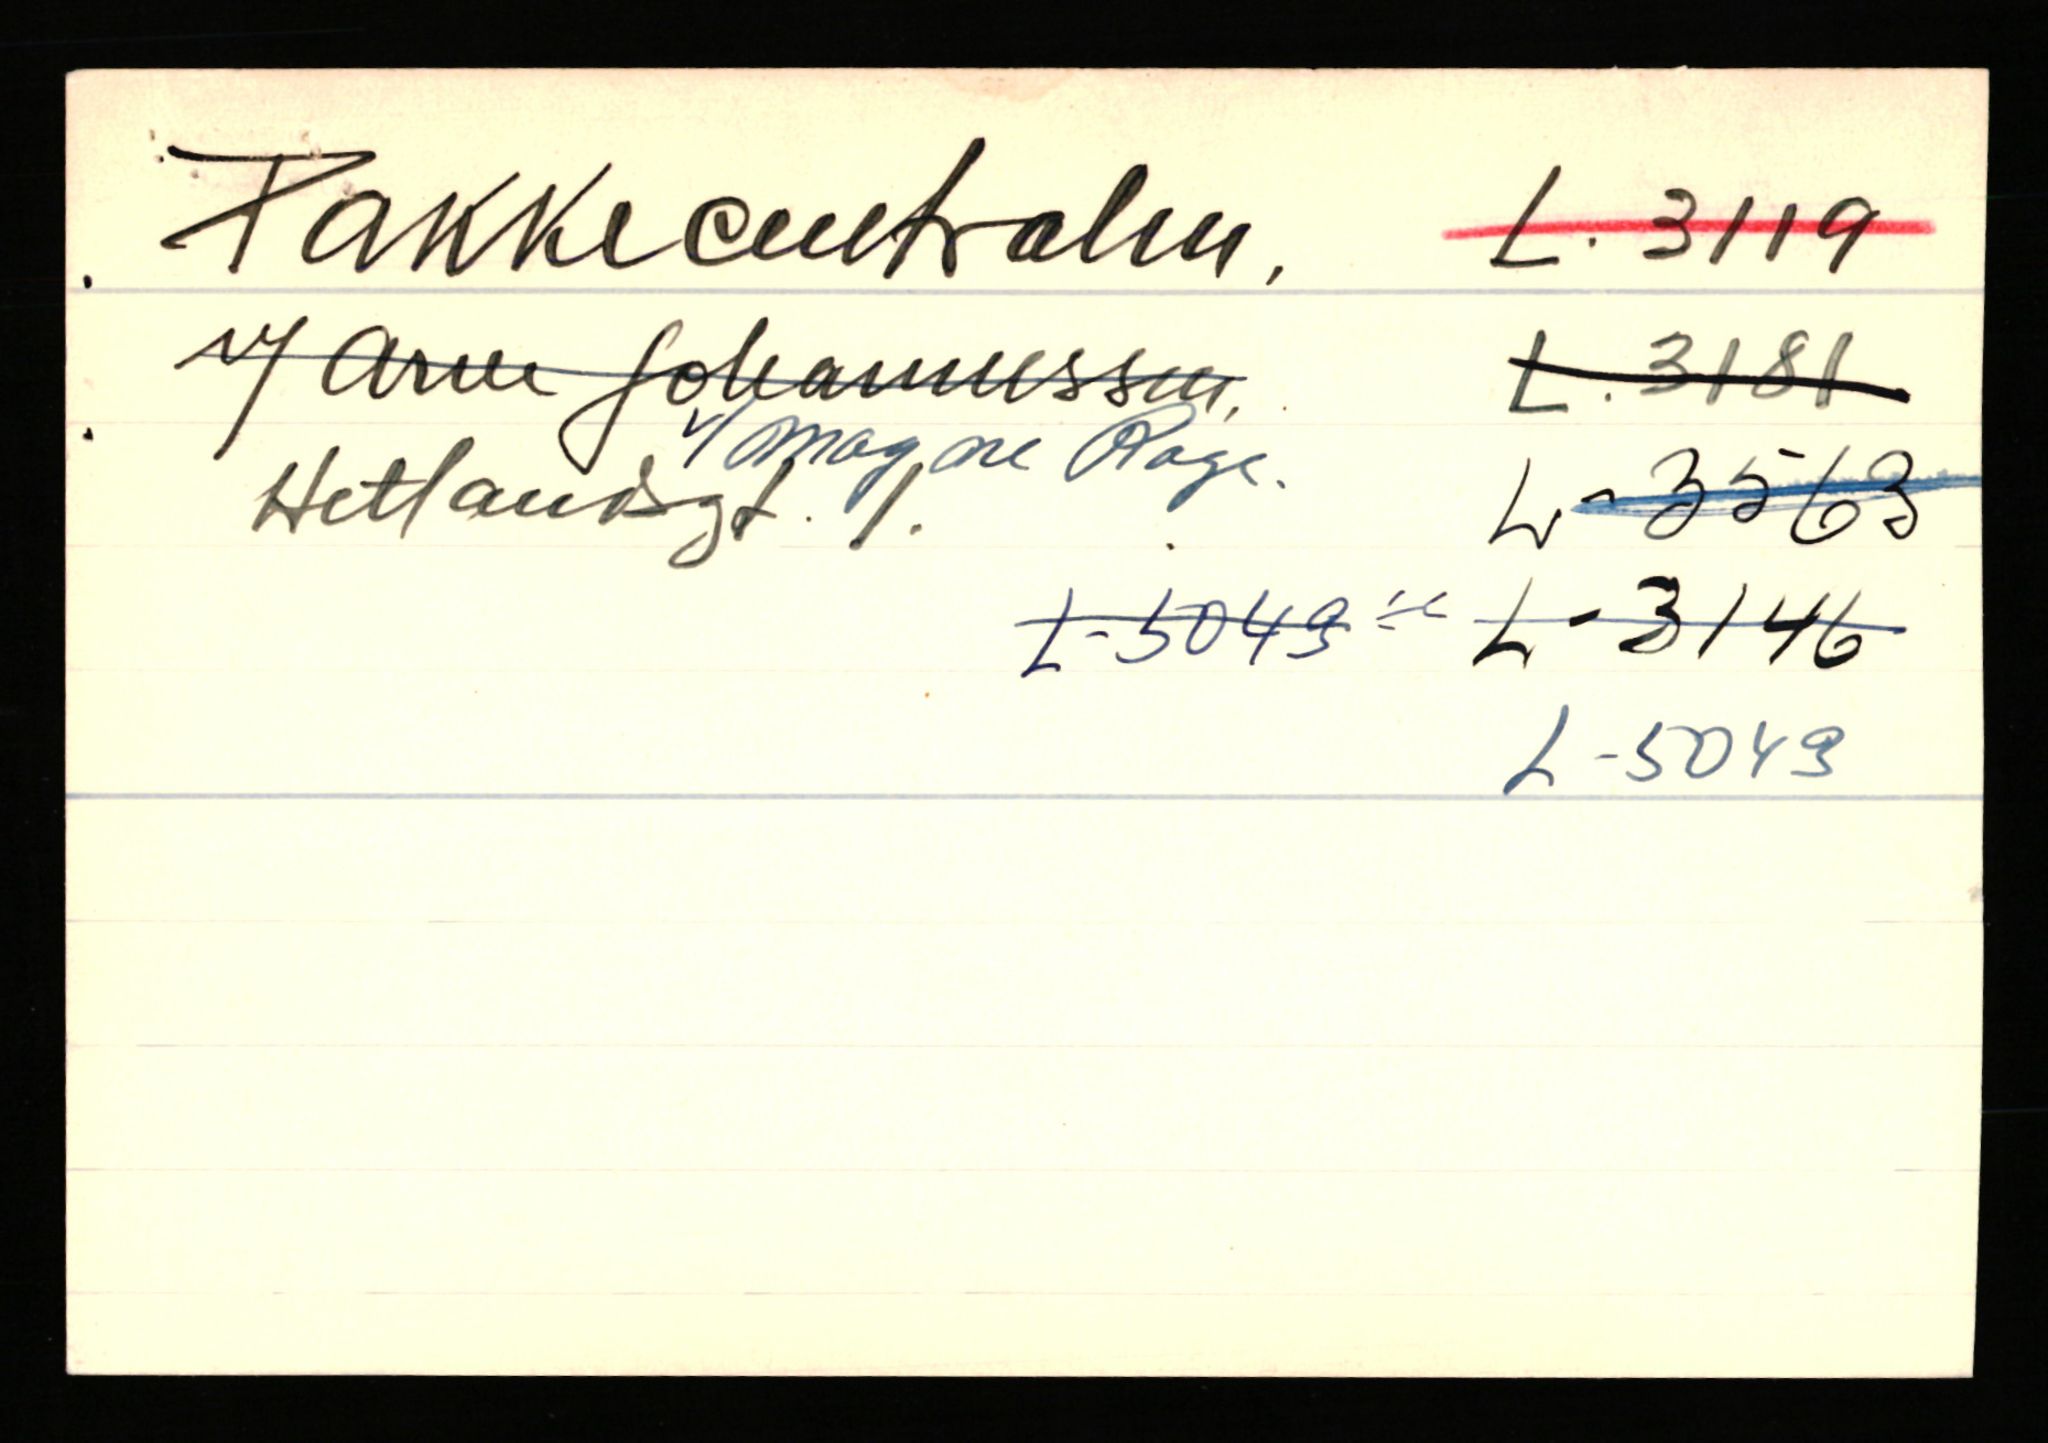 Pakkecentralen, L. 3119
v/ Arne Johannessen, L. 3181
v/ Magne Rage. L-3563
Hetlandsgt. 1.
L-5049 L-3146
L-5049